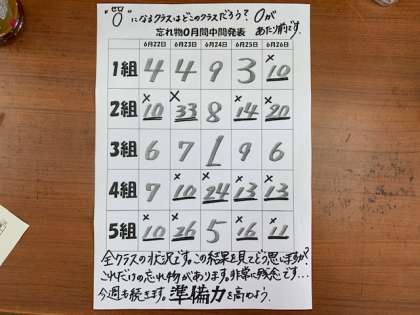 "ゼロ
0"になるクラスはどこのクラスだろう？0が
あたり前です。
忘れ物0月間中間発表
6月22日 6月23日 6月24日 6月25日 6月26日
1組 4 4 9 3 ×10
2組 ×10 ×33 8 ×14 ×20
3組 6 7 1 9 6
4組 9 ×10 ×24 ×13 ×13
5組 ×10 ×26 5 ×16 ×11
全クラスの状況です。この結果を見てどう思いますか？
これだけの忘れ物があります。非常に残念です…
今週も続きます。準備力を高めよう。